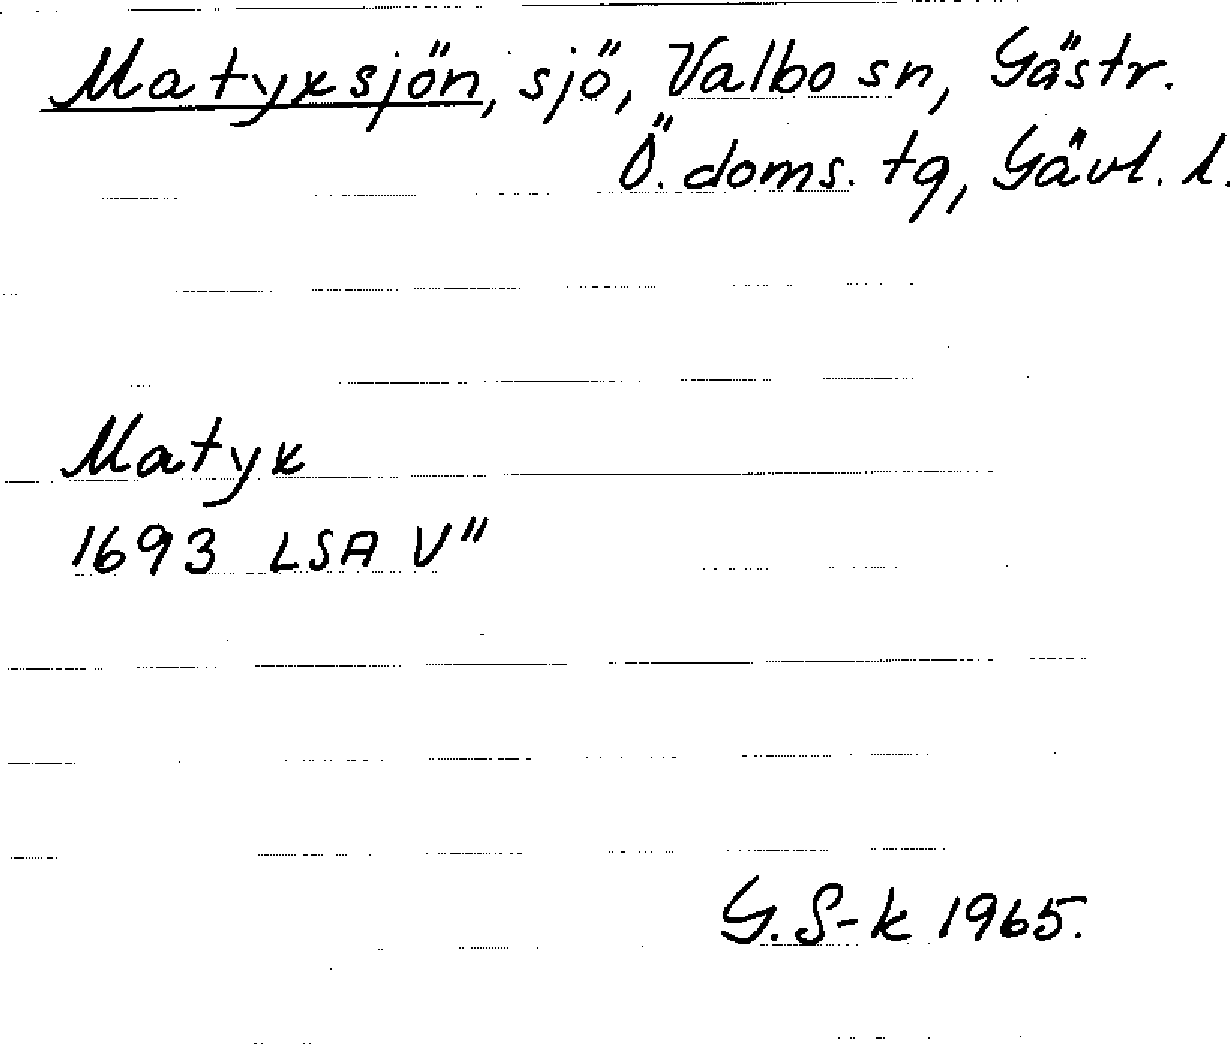 Matyxsjön, sjö, Valbo sn, Gästr.
Ö. doms. tg, Gävl. l.
Matyx
1693 LSA V"
G. S-k 1965.